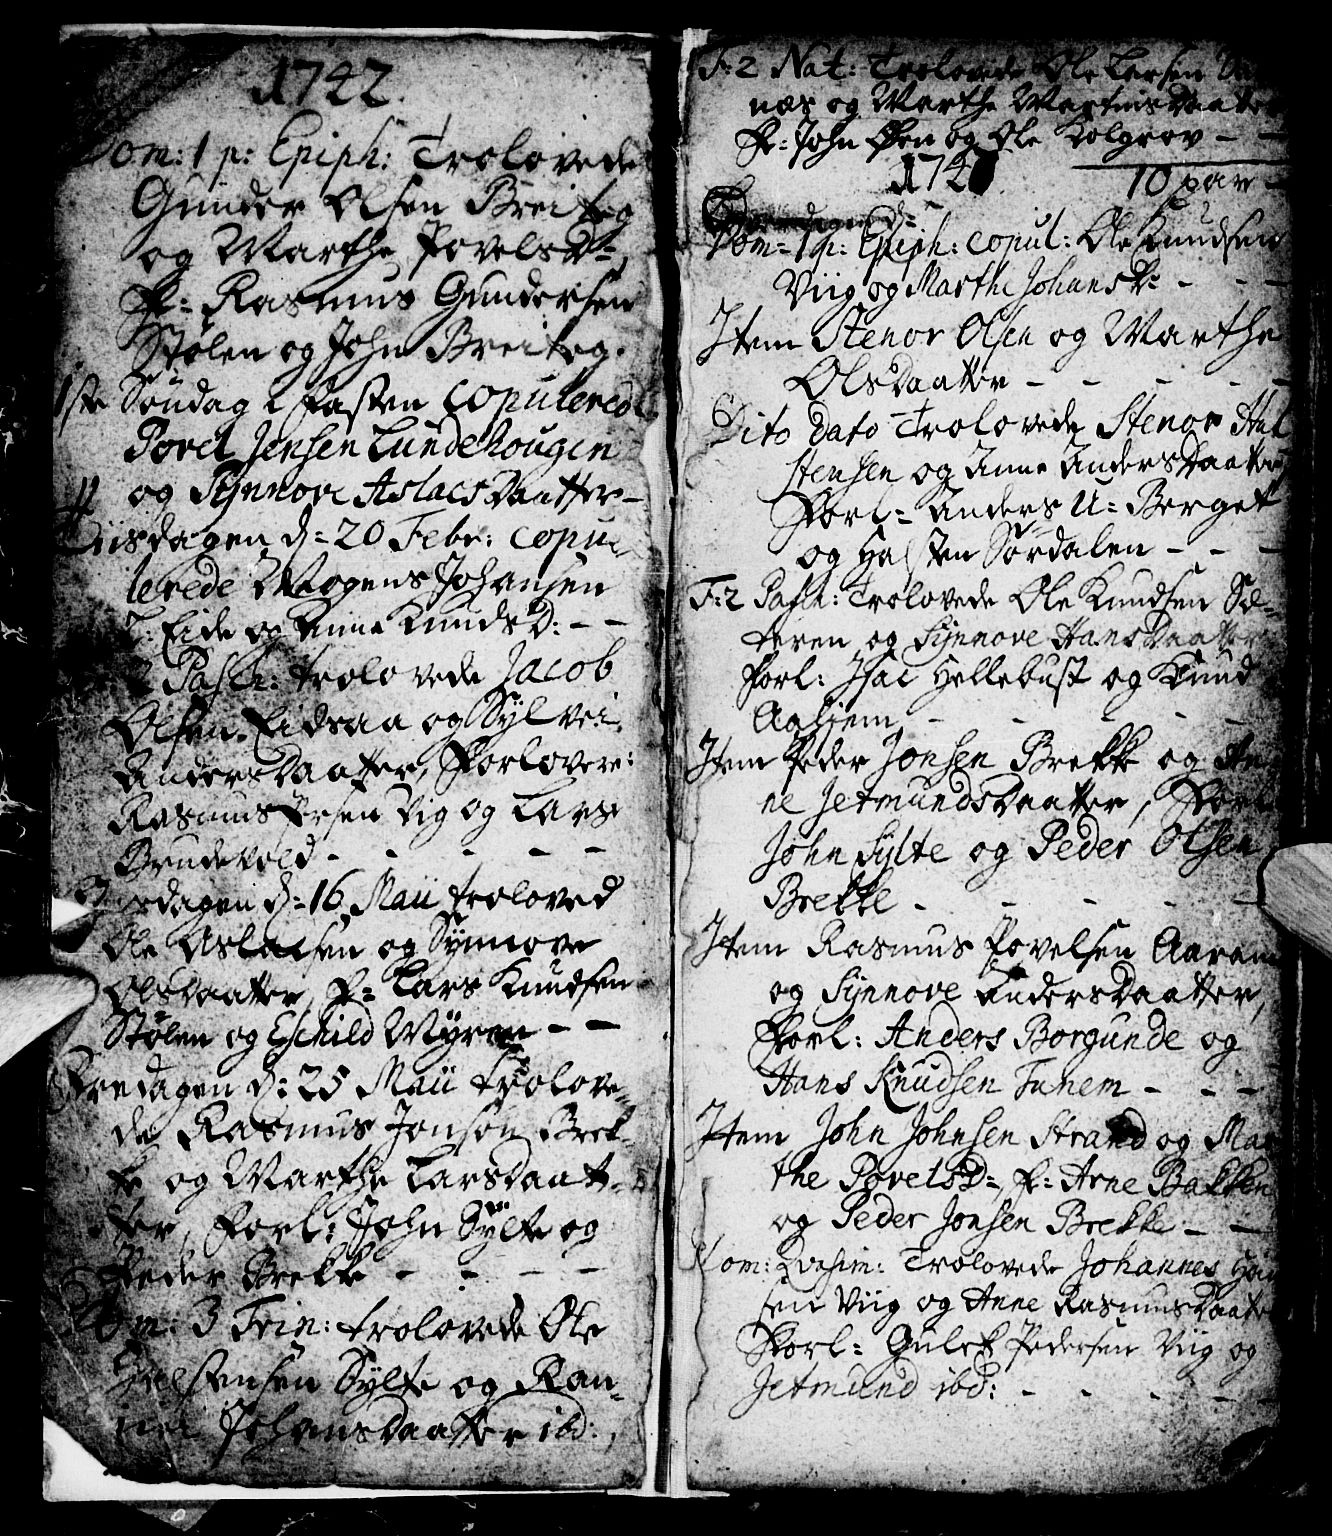 1742.
Dom: 1 p: Epiph: Trolovede
Gunder Olsen Breiteg
og Marthe PovelsD=,
F= Rasmus Gundersen
Stølen og John Breiteg.
1ste Søndag i Fasten copulered
Povel Jensen Lundehougen
og Synnove Aslacsdaatter –
Tiisdagen d= 20 Febr: copu-
lerede Mogens Johansen
T: Eide og Anne KnudsD: – –
2 Pasch: trolovede Jacob
Olsen Eidsaa og Sylvei
Andersdaatter, Forlovere:
Rasmus Persen Viig og Lars
Brudevold – – – –
dagen d= 16 Maii troloved
Ole Aslacsen og Synnove
Olsdaatter, F= Lars Knudsen
Stølen og Eschild Myren – –
Fredagen d: 25 Maii trolove-
de Rasmus Jonsen Brek-
ke og Marthe Larsdaat-
ter, Forl: John Sylte og
Peder Brekke – – – –
Dom: 3 Trin: trolovede Ole
Halstensen Sylte og Ran-
nei Johansdaatter ibd:,
F: 2 Nat: Trolovede Ole Larsen
næs og Marthe Martinisdaatter
F= John Øen og Ole Kolgrov – –
10 par –
174
Dom= 1 p: Epiph: copul: Ole Knudsen
Viig og Marthe JohansD: – – –
Item Stenor Olsen og Marthe
Olsdaatter – – – – –
Dito dato Trolovede Stenor Hal
stensen og Anne Andersdaatter
Forl= Anders U= Berget
og Halsten Sørdalen – – –
F: 2 Pasch: Trolovede Ole Knudsen Sæ-
teren og Synnove Hansdaatter
Forl: Isac Hellebust og Knud
Aahjem – – – – –
Item Peder Jonsen Brekke og An
ne Jetmundsdaatter, Forl
John Sylte og Peder Olsen
Brekke – – – – –
Item Rasmus Povelsen Aaram
og Synnove Andersdaatter,
Forl: Anders Borgunde og
Hans Knudsen Tunem – – –
Item John Johnsen Strand og Mar
the PovelsD=, F= Arne Bakken
og Peder Jonsen Brekke – –
Dom: Qvasim: Trolovede Johannes
sen Viig og Anne Rasmusdaatter
Forl= Gulek Pedersen Viig og
Jetmund ibd: – – – –